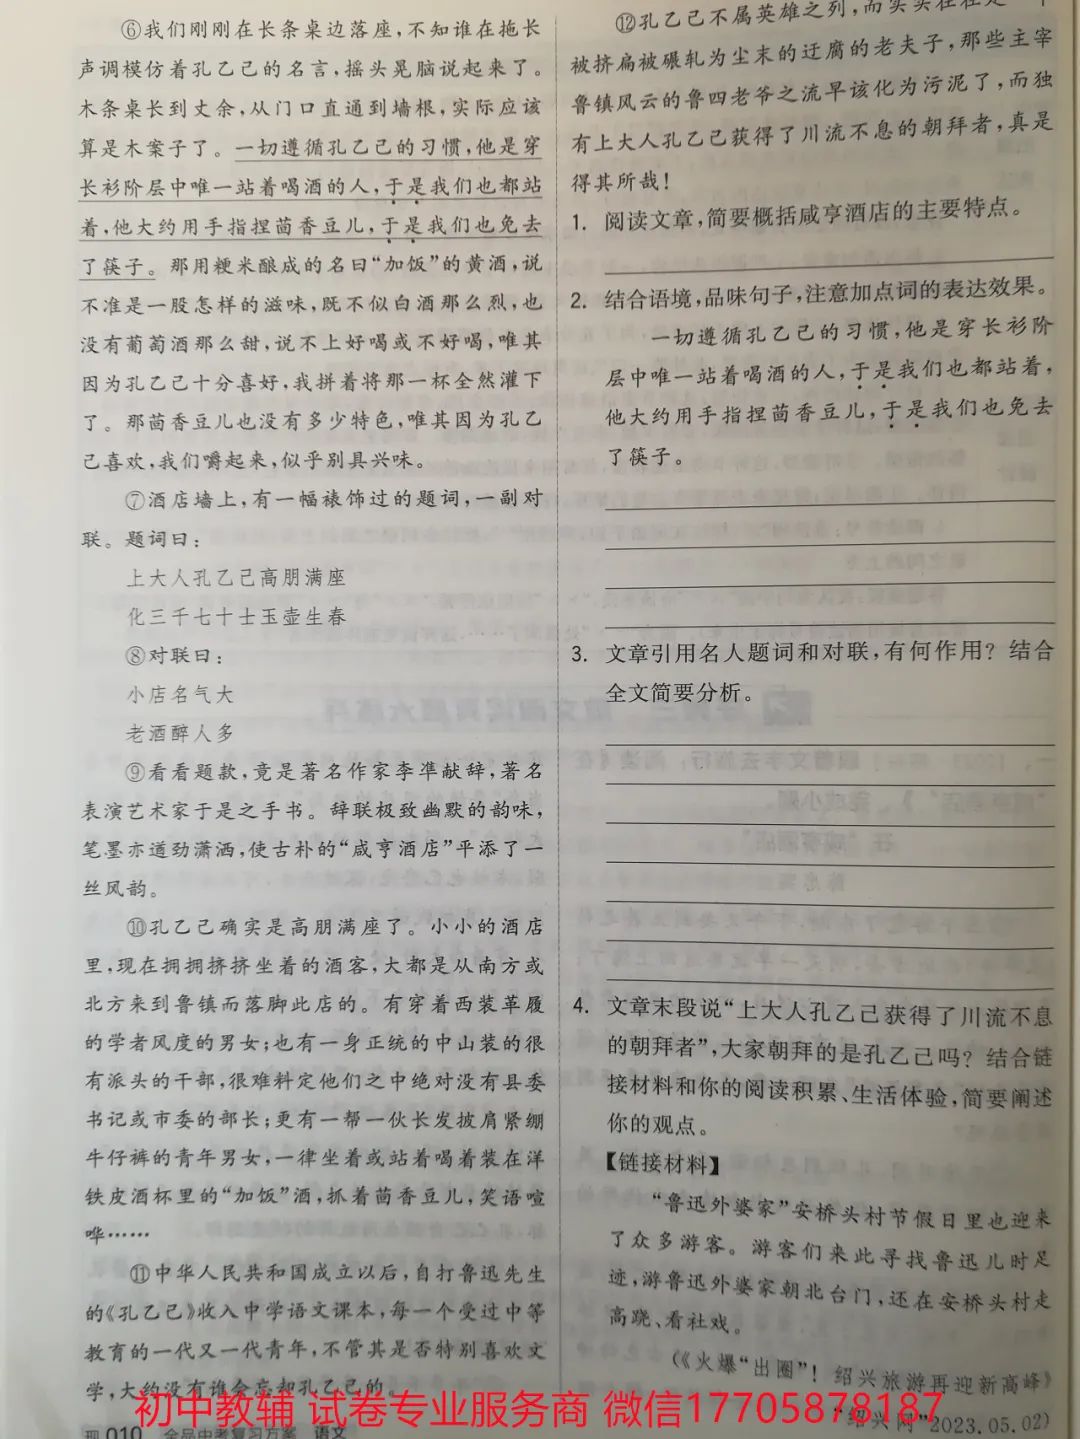 ⑥我们刚刚在长条桌边落座,不知谁在拖长
声调模仿着孔乙己的名言,摇头晃脑说起来了。
木条桌长到丈余,从门口直通到墙根,实际应该
算是木案子了。一切遵循孔乙己的习惯,他是穿
长衫阶层中唯一站着喝酒的人,于是我们也都站
着,他大约用手指捏茴香豆儿,于是我们也免去
了筷子。那用粳米酿成的名曰“加饭”的黄酒,说
不准是一股怎样的滋味,既不似白酒那么烈,也
没有葡萄酒那么甜,说不上好喝或不好喝,唯其
因为孔乙己十分喜好,我拼着将那一杯全然灌下
了。那茴香豆儿也没有多少特色,唯其因为孔乙
己喜欢,我们嚼起来,似乎别具兴味。
⑦酒店墙上,有一幅裱饰过的题词,一副对
联。题词曰:
上大人孔乙己高朋满座
化三千七十士玉壶生春
⑧对联曰:
小店名气大
老酒醉人多
⑨看看题款,竟是著名作家李準献辞,著名
表演艺术家于是之手书。辞联极致幽默的韵味,
笔墨亦遒劲潇洒,使古朴的“咸亨酒店”平添了一
丝风韵。
⑩孔乙己确实是高朋满座了。小小的酒店
里,现在拥拥挤挤坐着的酒客,大都是从南方或
北方来到鲁镇而落脚此店的。有穿着西装革履
的学者风度的男女;也有一身正统的中山装的很
有派头的干部,很难料定他们之中绝对没有县委
书记或市委的部长;更有一帮一伙长发披肩紧绷
牛仔裤的青年男女,一律坐着或站着喝着装在洋
铁皮酒杯里的“加饭”酒,抓着茴香豆儿,笑语喧
哗……
⑪中华人民共和国成立以后,自打鲁迅先生
的《孔乙己》收入中学语文课本,每一个受过中等
教育的一代又一代青年,不管其是否特别喜欢文
学,大约没有谁会忘却孔乙己的。
010 全品中考复习方案 语文
⑫孔乙己不属英雄之列,而实实在在是一个
被挤扁被碾轧为尘末的迂腐的老夫子,那些主宰
鲁镇风云的鲁四老爷之流早该化为污泥了,而独
有上大人孔乙己获得了川流不息的朝拜者,真是
得其所哉!
1. 阅读文章,简要概括咸亨酒店的主要特点。
2. 结合语境,品味句子,注意加点词的表达效果。
一切遵循孔乙己的习惯,他是穿长衫阶
层中唯一站着喝酒的人,于是我们也都站着,
他大约用手指捏茴香豆儿,于是我们也免去
了筷子。
3. 文章引用名人题词和对联,有何作用?结合
全文简要分析。
4. 文章末段说“上大人孔乙己获得了川流不息
的朝拜者”,大家朝拜的是孔乙己吗?结合链
接材料和你的阅读积累、生活体验,简要阐述
你的观点。
【链接材料】
“鲁迅外婆家”安桥头村节假日里也迎来
了众多游客。游客们来此寻找鲁迅儿时足
迹,游鲁迅外婆家朝北台门,还在安桥头村走
高跷、看社戏。
(《火爆“出圈”!绍兴旅游再迎新高峰》
“绍兴网”2023.05.02)
初中教辅 试卷专业服务商 微信17705878187